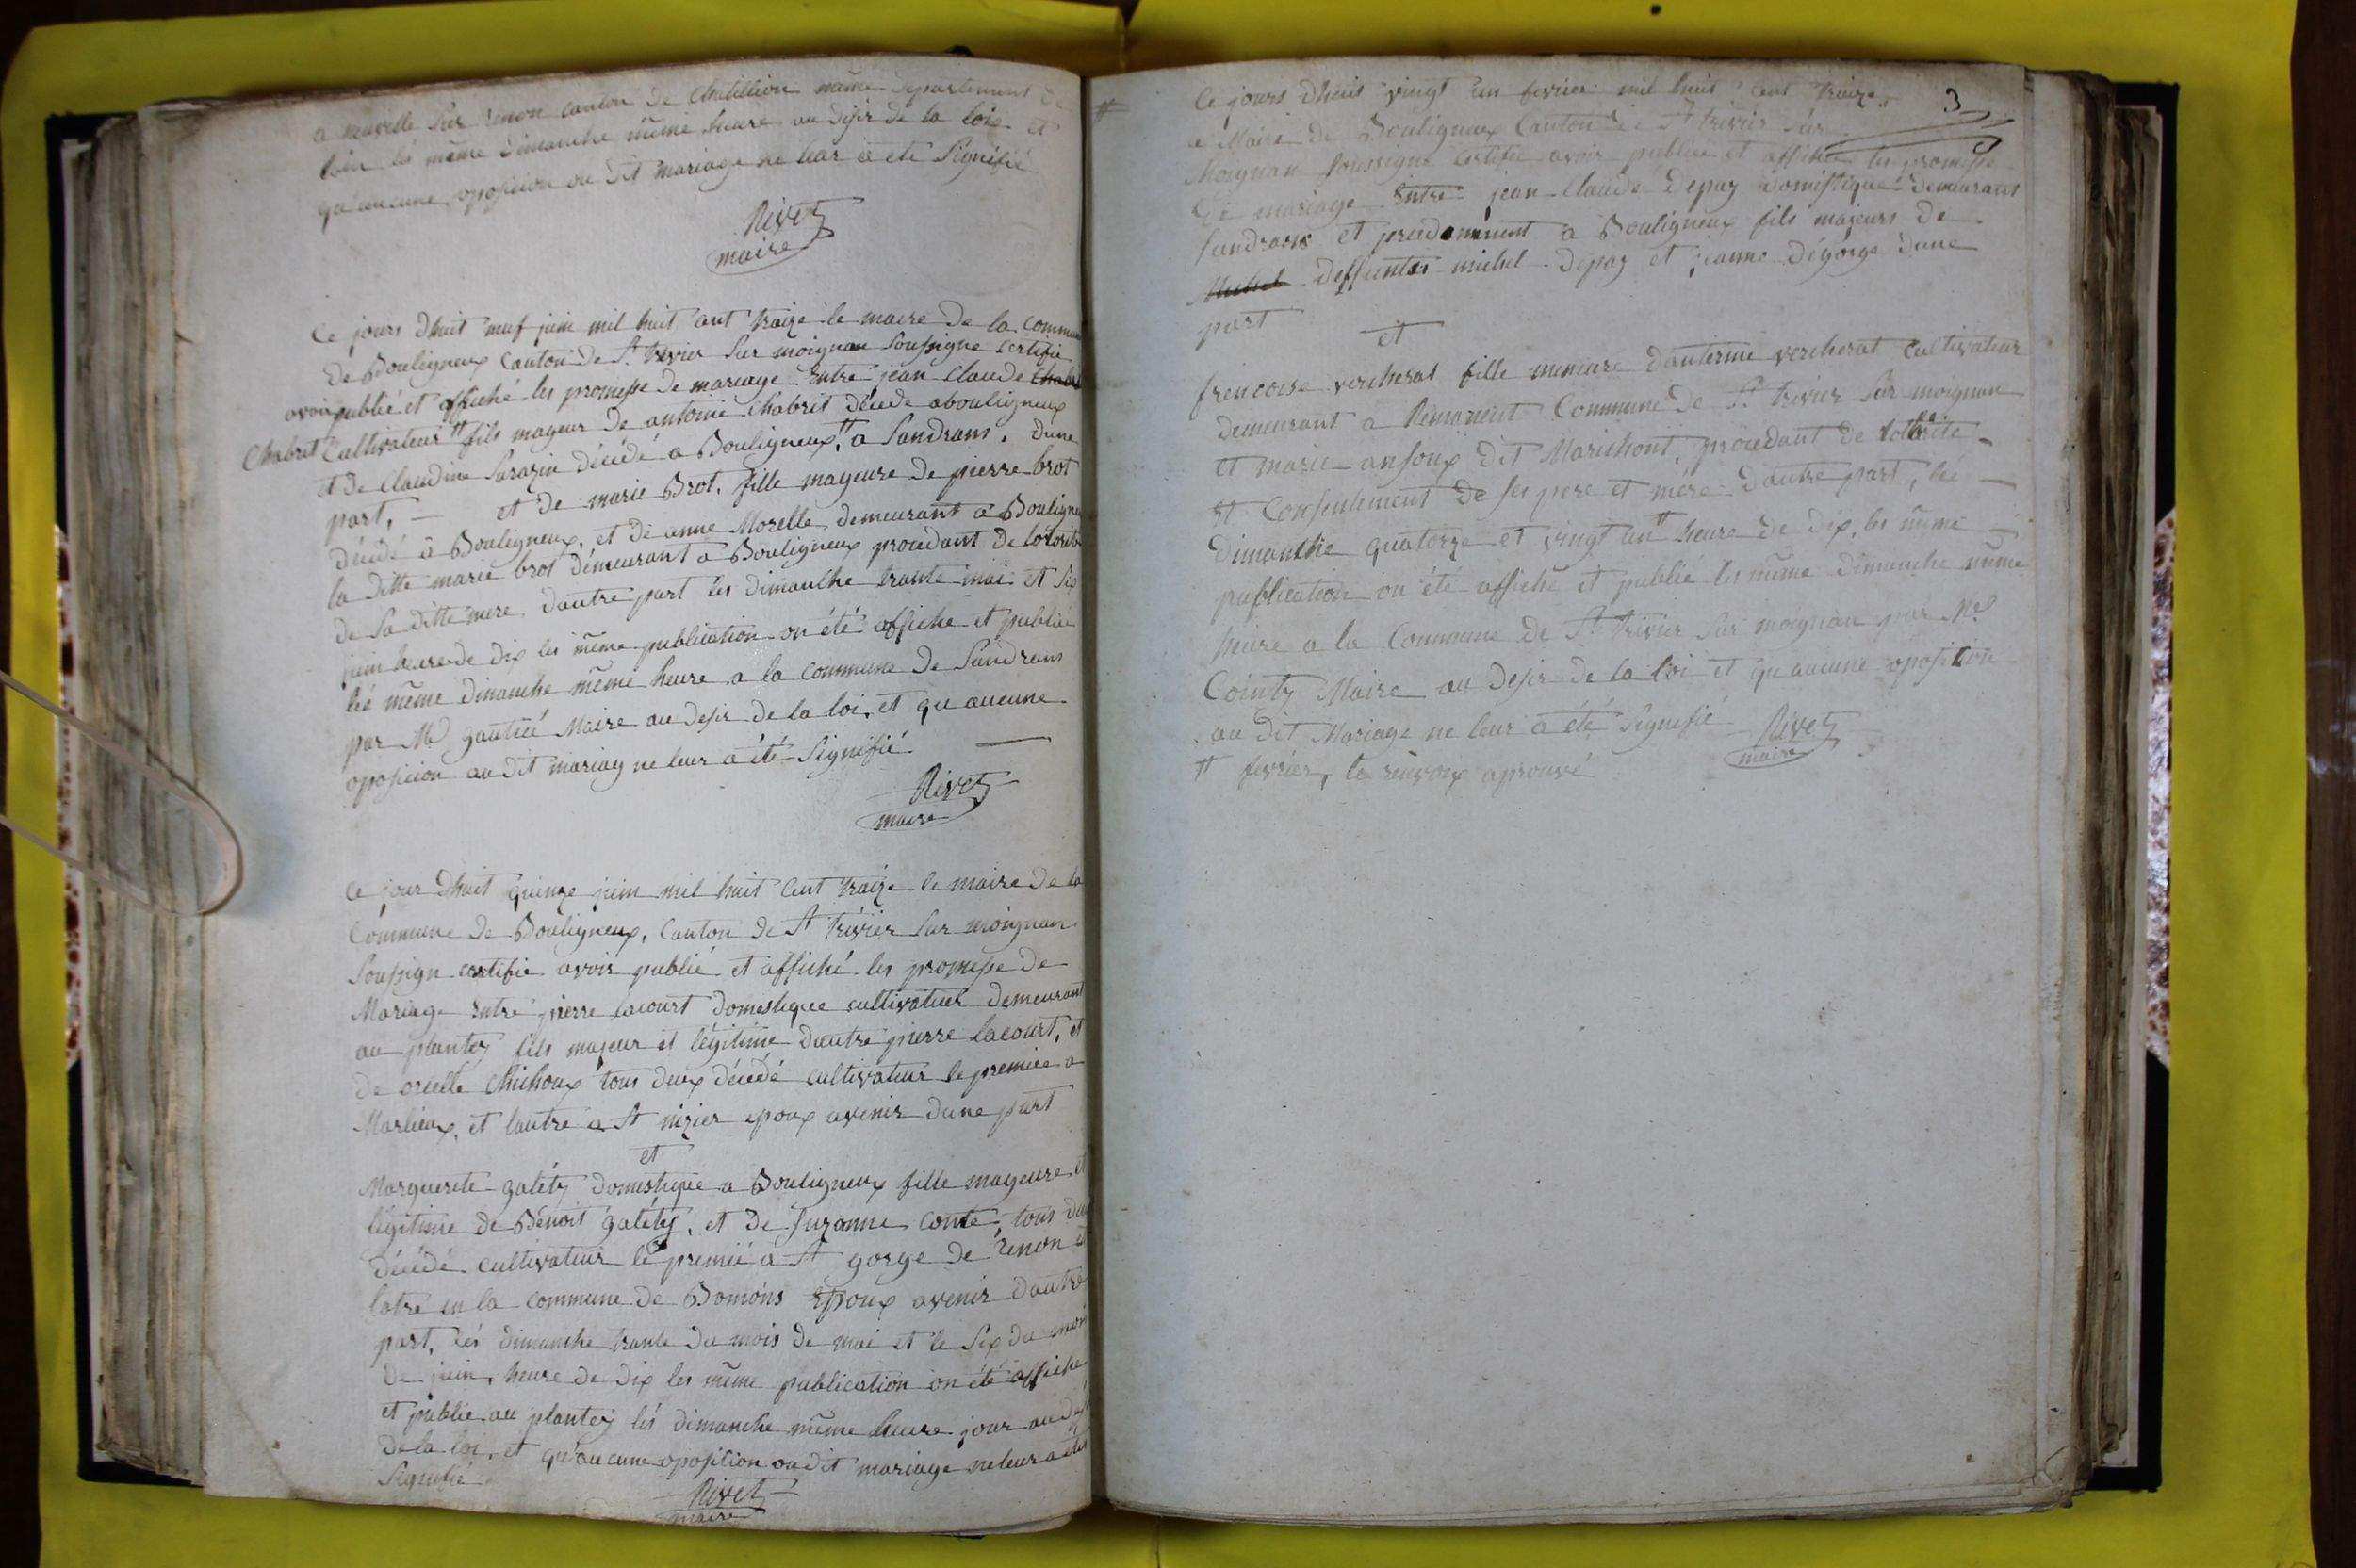 a neuville sur renon canton de Chatillion même departement de
lain les même dimanche même heure au desir de la loi et
qu'aucune oposicion au dit mariage ne leur a eté Signifié
Rivet
maire
Ce jours dhuit neuf juin mil huit cent traize le maire de la Commune
de Bouligneux Canton de St. trivier Sur moignan Soussigne certifie
avoir publié et affiché les promesse de mariage Entre jean Claude Chabrit
Chabrit Cultivateur # fils mageur de antoine Chabrit décede abouligneux
et de Claudine Sarazin décédé a Bouligneux, # a Sandrans. dune
part, — et de marie Brot. fille mageure de pierre brot
décédé a Bouligneux, et de anne Morelle demeurant a Bouligneux
la ditte marie brot démeurant a Bouligneux procedant de lotorité
de Sa ditte mere dautre part les dimanche trante mai et Six
juin heure de dix les même publication on été affiche et publié
lés même dimanche même heure a la commune de Sandrans
par Mr gautié Maire au desir de la loi, et qu aucune
oposicion au dit mariag ne leur a été Signifié. —
Rivet
maire
Ce jour dhuit quinze juin mil huit Cent traize le maire de la
Commune de Bouligneux, Canton de St trivier Sur moignan
Soussign certifie avoir publié et affiché les promesse de
Mariage Entre pierre lacourt domestique cultivateur demeurant
au plantey fils majeur et légitime dautre pierre lacourt, et
de Chichoux tous deux décédé cultivateur le premiee a
Marlieux, et lautre a St nizier epoux avenir dune part
et
Marguerite galéty domestique a Bouligneux fille mageure et
légitime de Bénoit galéty, et de Suzanne Conte, tous
décédé cultivateur lé premié a St gorge de renon
latre en la commune de Bomons Epoux avenir dautre
part, lés dimanche trante du mois de mai et le Six du moi
de juin, heure de dix les même publication on été affiche
et publie au plantey lés dimanche même heure jour au
de la loi, et qu'aucune oposition audit mariage ne leur a été
Signifié
Rivet
maire
3
# Ce jours dhuis vingt un fevrier mil huis cent traize
le Maire de Bouligneux Canton de St trivier Sur
Moignan Soussigne Certifie avoir publiée et affichée les promesse
de mariage Entre jean Claude Depay domistique demeurant
Sandrans et precedamment a Bouligneux fils majeurs de
Michel deffuntes michel depay et jeanne dégorge dune
part
et
frencoise vercherat fille mineure dantoinne vercherat Cultivateur
demeurant a Rémoneut Commune de St. trivier Sur moignan
et marie ansoux dit Marichont, procedant de lotorite
Et Consentement de Ses pere et mére dautre part, les —
dimanche quatorze et vingt un # heure de dix, les même —
publication on été affiché et publié les même dimanche même
heure a la Commune de St. trivier Sur moignan par Mr
Cointy Maire au desir de la loi et qu aucune oposition
au dit Mariage ne leur a été Signifié
Rivet
maire
# fevrier, le renvoix aprouvé